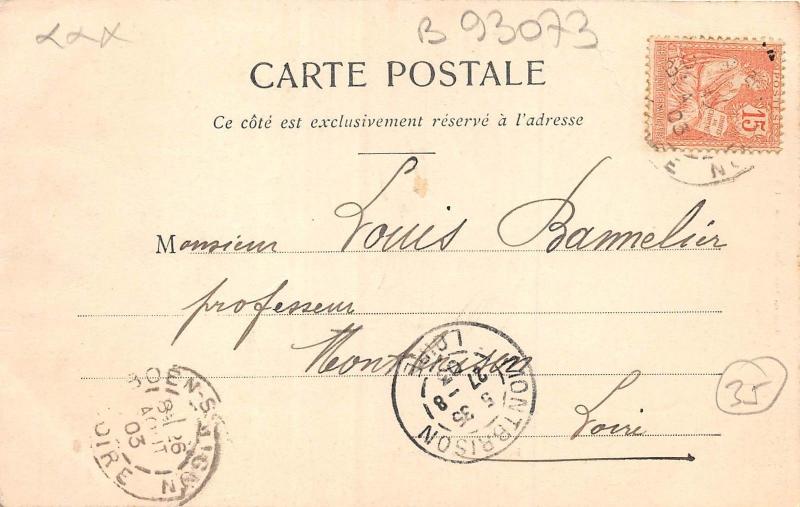 B 93073
CARTE POSTALE
Ce côté est exclusivement réservé à l'adresse
15
POSTES
Monsieur Louis Bannelier
professeur
Montbrison
Loire
MONTBRISON
LOIRE
5 35
27 -8
03
26
AOUT
03
LOIRE
35